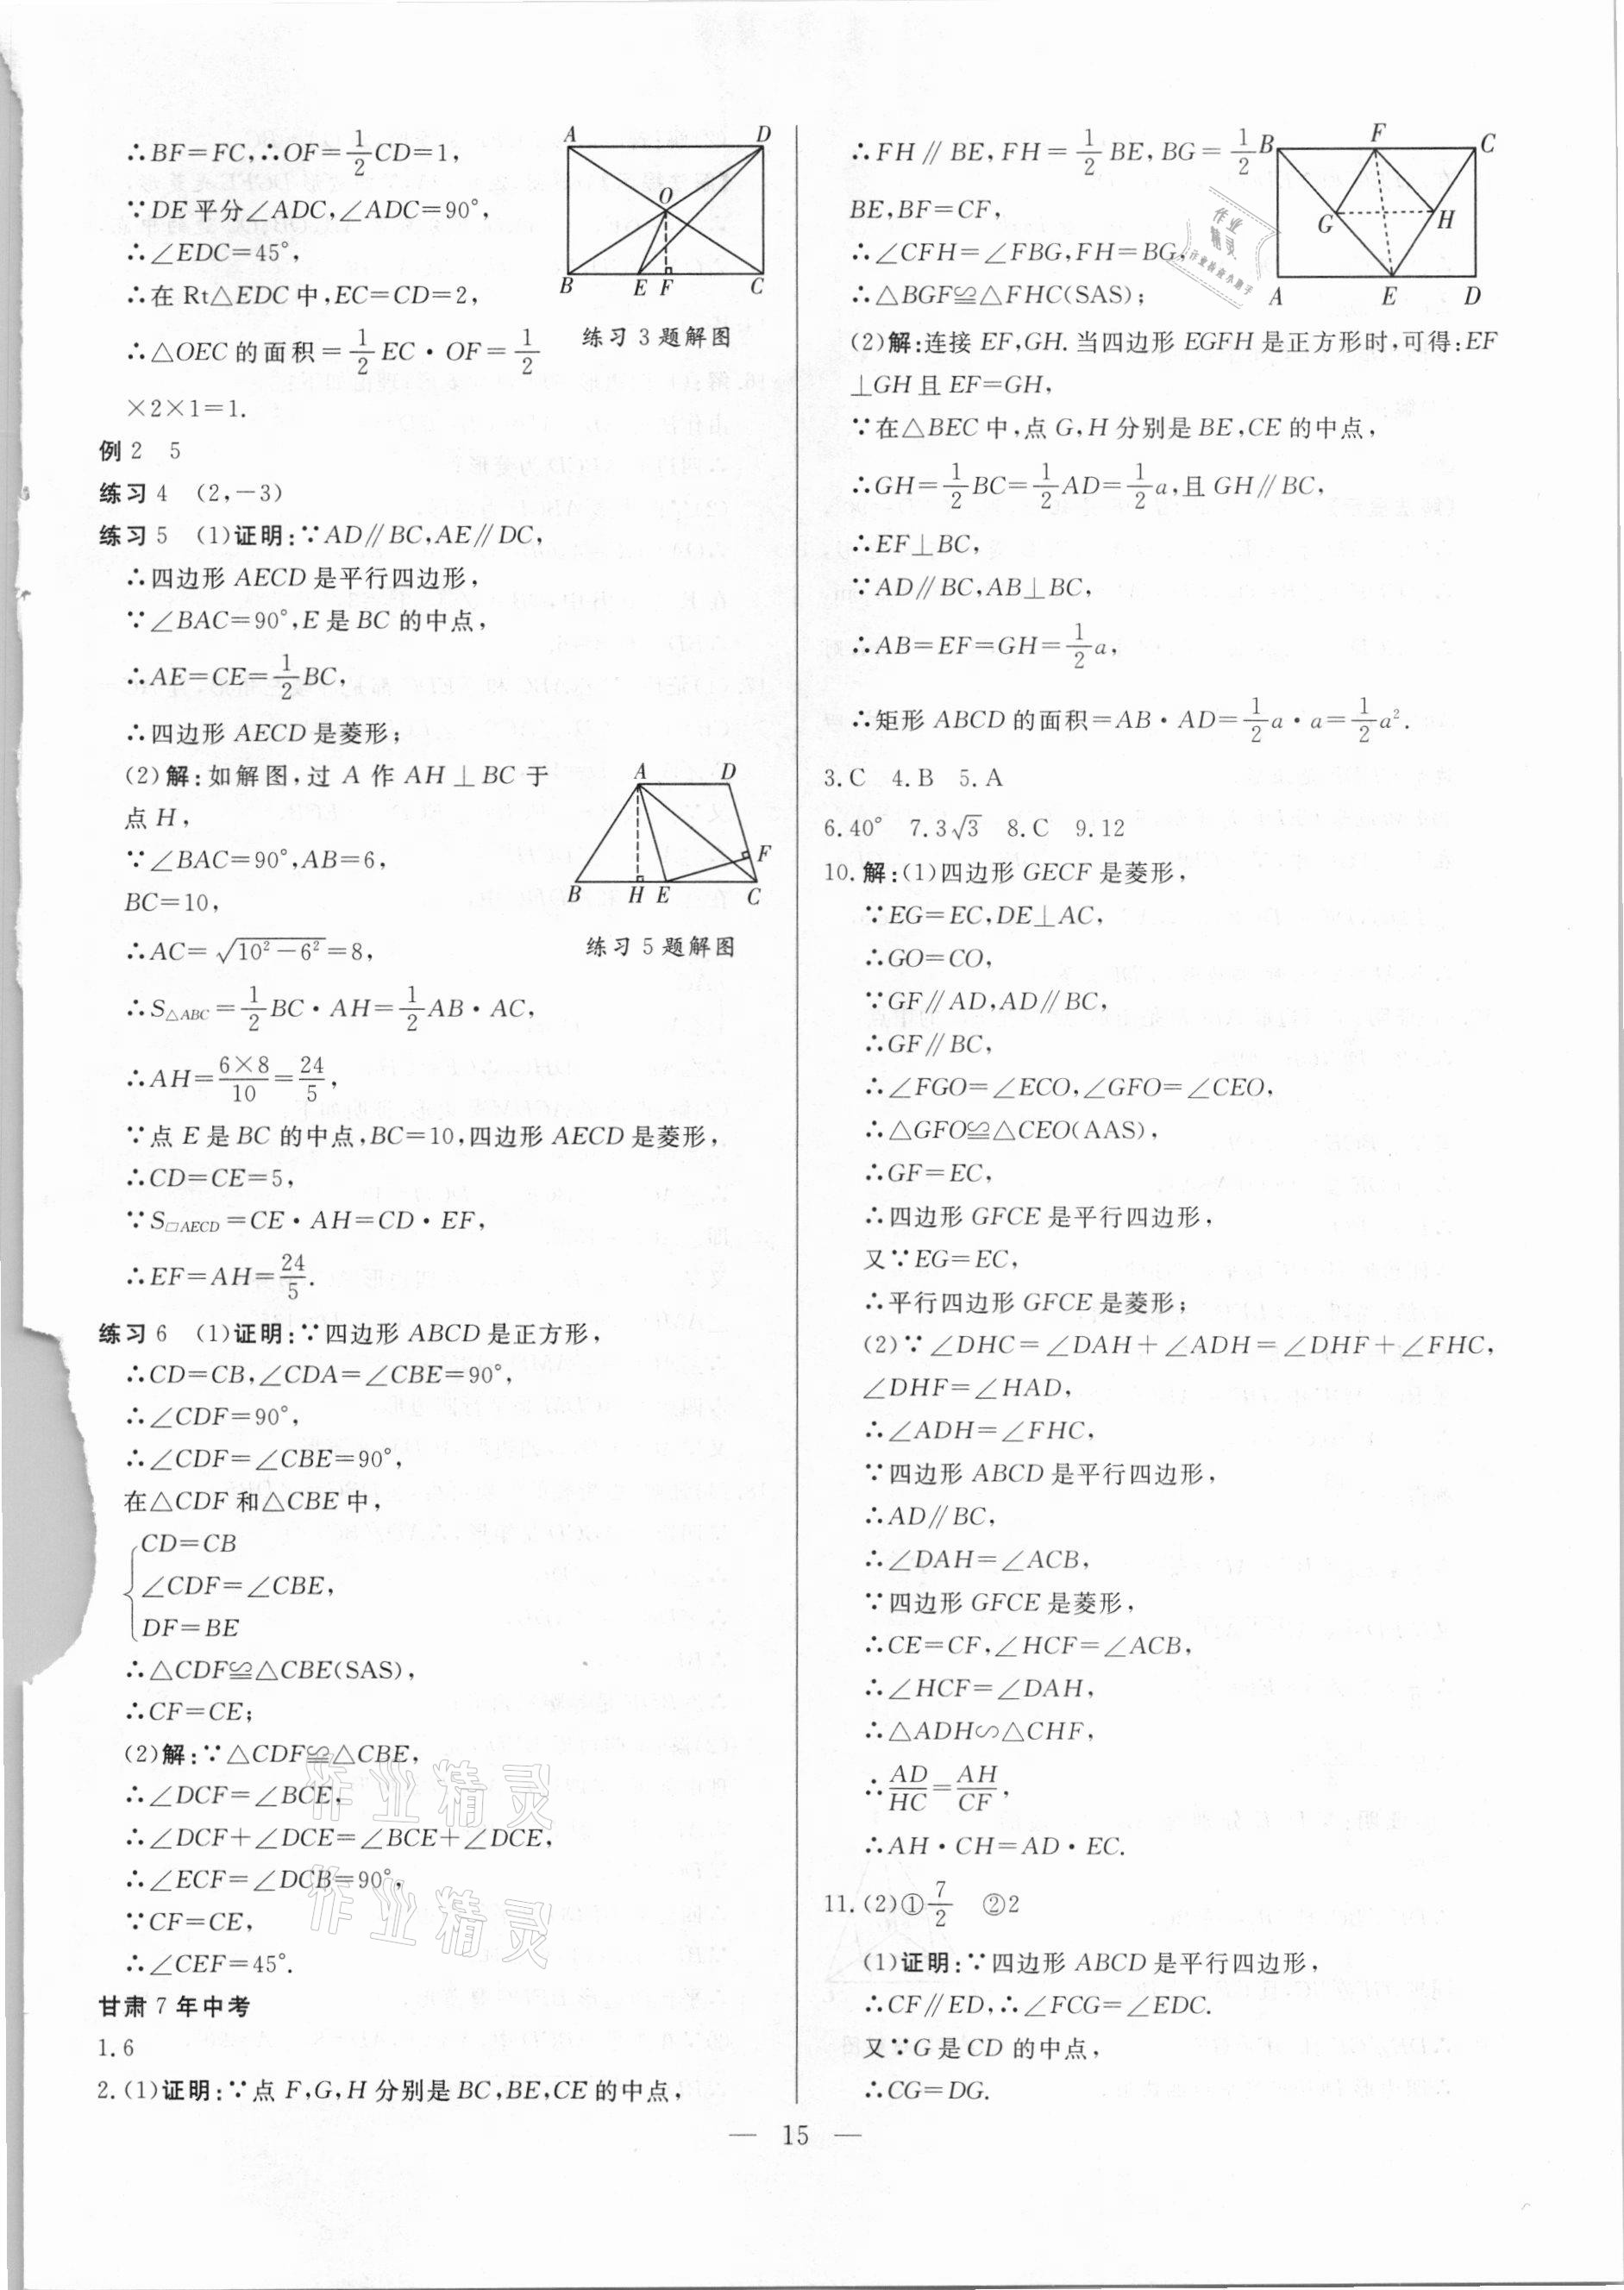 ∴BF=FC,∴OF=1/2CD=1,
∵DE平分∠ADC,∠ADC=90°,
∴∠EDC=45°,
∴在 Rt△EDC 中,EC=CD=2,
∴△OEC 的面积=1/2EC·OF=1/2
×2×1=1.
A D
O
B E F C
练习 3 题解图
例 2 5
练习 4 (2,-3)
练习 5 (1)证明:∵AD∥BC,AE∥DC,
∴四边形 AECD 是平行四边形,
∵∠BAC=90°,E 是 BC 的中点,
∴AE=CE=1/2BC,
∴四边形 AECD 是菱形;
(2)解:如解图,过 A 作 AH⊥BC 于
点 H,
∵∠BAC=90°,AB=6,
BC=10,
∴AC=√(10²-6²)=8,
A D
F
B H E C
练习 5 题解图
∴S△ABC=1/2BC·AH=1/2AB·AC,
∴AH=(6×8)/10=24/5,
∵点 E 是 BC 的中点,BC=10,四边形 AECD 是菱形,
∴CD=CE=5,
∵S▱AECD=CE·AH=CD·EF,
∴EF=AH=24/5.
练习 6 (1)证明:∵四边形 ABCD 是正方形,
∴CD=CB,∠CDA=∠CBE=90°,
∴∠CDF=90°,
∴∠CDF=∠CBE=90°,
在△CDF 和△CBE 中,
CD=CB
∠CDF=∠CBE,
DF=BE
∴△CDF≌△CBE(SAS),
∴CF=CE;
(2)解:∵△CDF≌△CBE,
∴∠DCF=∠BCE,
∴∠DCF+∠DCE=∠BCE+∠DCE,
∴∠ECF=∠DCB=90°,
∵CF=CE,
∴∠CEF=45°.
作业精灵
作业精灵
甘肃 7 年中考
1.6
2.(1)证明:∵点 F,G,H 分别是 BC,BE,CE 的中点,
∴FH∥BE,FH=1/2BE,BG=1/2
BE,BF=CF,
∴∠CFH=∠FBG,FH=BG,
∴△BGF≌△FHC(SAS);
B F C
G H
A E D
作业
精灵
(2)解:连接 EF,GH.当四边形 EGFH 是正方形时,可得:EF
⊥GH 且 EF=GH,
∵在△BEC 中,点 G,H 分别是 BE,CE 的中点,
∴GH=1/2BC=1/2AD=1/2a,且 GH∥BC,
∴EF⊥BC,
∵AD∥BC,AB⊥BC,
∴AB=EF=GH=1/2a,
∴矩形 ABCD 的面积=AB·AD=1/2a·a=1/2a².
3.C 4.B 5.A
6.40° 7.3√3 8.C 9.12
10.解:(1)四边形 GECF 是菱形,
∵EG=EC,DE⊥AC,
∴GO=CO,
∵GF∥AD,AD∥BC,
∴GF∥BC,
∴∠FGO=∠ECO,∠GFO=∠CEO,
∴△GFO≌△CEO(AAS),
∴GF=EC,
∴四边形 GFCE 是平行四边形,
又∵EG=EC,
∴平行四边形 GFCE 是菱形;
(2)∵∠DHC=∠DAH+∠ADH=∠DHF+∠FHC,
∠DHF=∠HAD,
∴∠ADH=∠FHC,
∵四边形 ABCD 是平行四边形,
∴AD∥BC,
∴∠DAH=∠ACB,
∵四边形 GFCE 是菱形,
∴CE=CF,∠HCF=∠ACB,
∴∠HCF=∠DAH,
∴△ADH∽△CHF,
∴AD/HC=AH/CF,
∴AH·CH=AD·EC.
11.(2)①7/2 ②2
(1)证明:∵四边形 ABCD 是平行四边形,
∴CF∥ED,∴∠FCG=∠EDC.
又∵G 是 CD 的中点,
∴CG=DG.
— 15 —